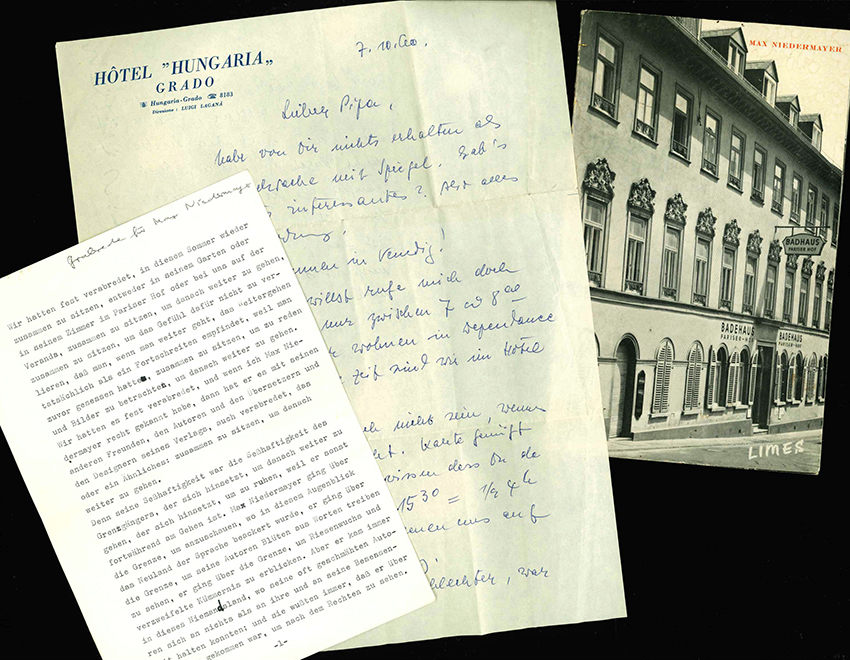 HÔTEL "HUNGARIA„
GRADO
Hungaria-Grado ☎ 8183
Direzione : LUIGI LAGANÁ
7.10.60.
Lieber Pipa,
habe von Dir nichts erhalten als
mit Spiegel. Gab's
interessantes? Also alles
in Venedig!
willst rufe mich doch
nur zwischen 7 und 8
wohnen in Dependance
Zeit sind wir im Hôtel
nicht sein, wenns
Karte genügt
wissen dass Du da
15 30 = 1/2 4 h
uns auf
schlechter, war
Grabrede für Max Niedermayer
Wir hatten fest verabredet, in diesem Sommer wieder
zusammen zu sitzen, entweder in seinem Garten oder
in seinem Zimmer im Pariser Hof oder bei uns auf der
Veranda, zusammen zu sitzen, um danach weiter zu gehen,
zusammen zu sitzen, um das Gefühl dafür nicht zu ver-
lieren, daß man, wenn man weiter geht, das Weitergehen
tatsächlich als ein Fortschreiten empfindet, weil man
zuvor gesessen hatte, zusammen zu sitzen, um zu reden
und Bilder zu betrachten, um danach weiter zu gehen.
Wir hatten es fest verabredet, und wenn ich Max Nie-
dermayer recht gekannt habe, dann hat er es mit seinen
anderen Freunden, den Autoren und den Übersetzern und
den Designern seines Verlags, auch verabredet, das
oder ein Ähnliches: zusammen zu sitzen, um danach
weiter zu gehen.
Denn seine Seßhaftigkeit war die Seßhaftigkeit des
Grenzgängers, der sich hinsetzt, um danach weiter zu
gehen, der sich hinsetzt, um zu ruhen, weil er sonst
fortwährend am Gehen ist. Max Niedermayer ging über
die Grenze, um anzuschauen, wo in diesem Augenblick
das Neuland der Sprache beackert wurde, er ging über
die Grenze, um seine Autoren Blüten aus Worten treiben
zu sehen, er ging über die Grenze, um Riesenwuchs und
verzweifelte Kümmernis zu erblicken. Aber er kam immer
in dieses Niemandsland, wo seine oft geschmähten Auto-
ren sich an nichts als an ihre und an seine Besessen-
halten konnten; und sie wußten immer, daß er über
gekommen war, um nach dem Rechten zu sehen.
-1-
MAX NIEDERMAYER
BADHAUS
PARISER HOF
BADEHAUS
PARISER-HOF
BADEHAUS
PARISER-HOF
LIMES